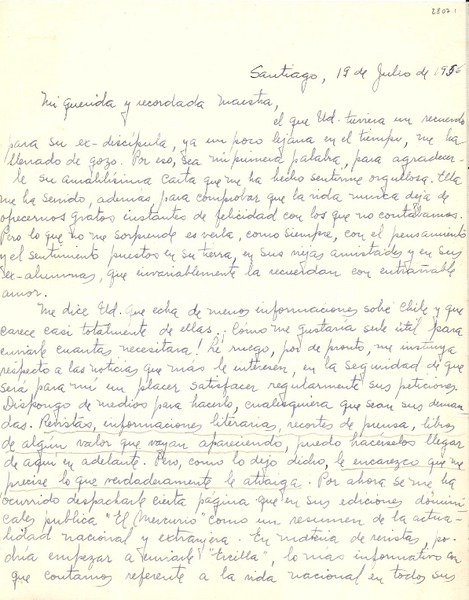 2807.1
Santiago, 19 de Julio de 1956
Mi querida y recordada Maestra,
el que Ud. tuviera un recuerdo
para su ex-discípula, ya un poco lejana en el tiempo, me ha
llenado de gozo. Por eso, sea mi primera palabra, para agradecer-
le su amabilísima carta que me ha hecho sentirme orgullosa. Ella
me ha servido, además, para comprobar que la vida nunca deja de
ofrecernos gratos instantes de felicidad con los que no contábamos.
Pero lo que no me sorprende es verla, como siempre, con el pensamiento
y el sentimiento puestos en su tierra, en sus viejas amistades y en sus
ex-alumnas, que invariablemente la recuerdan con entrañable
amor.
Me dice Ud. que echa de menos informaciones sobre Chile y que
carece casi totalmente de ellas. ¡Cómo me gustaría serle útil para
enviarle cuantas necesitara! Le ruego, por de pronto, me instruya
respecto a las noticias que más le interesen, en la seguridad de que
será para mí un placer satisfacer regularmente sus peticiones.
Dispongo de medios para hacerlo, cualesquiera que sean sus deman-
das. Revistas, informaciones literarias, recortes de prensa, libros
de algún valor que vayan apareciendo, puedo hacérselos llegar
de aquí en adelante. Pero, como lo dejo dicho, le encarezco que me
precise lo que verdaderamente le atraiga. Por ahora se me ha
ocurrido despacharle cierta página que en sus ediciones domini-
cales publica "El Mercurio" como un resumen de la actua-
lidad nacional y extranjera. En materia de revistas, po-
dría empezar a enviarle "Ercilla", lo más informativo con
que contamos referente a la vida nacional en todos sus